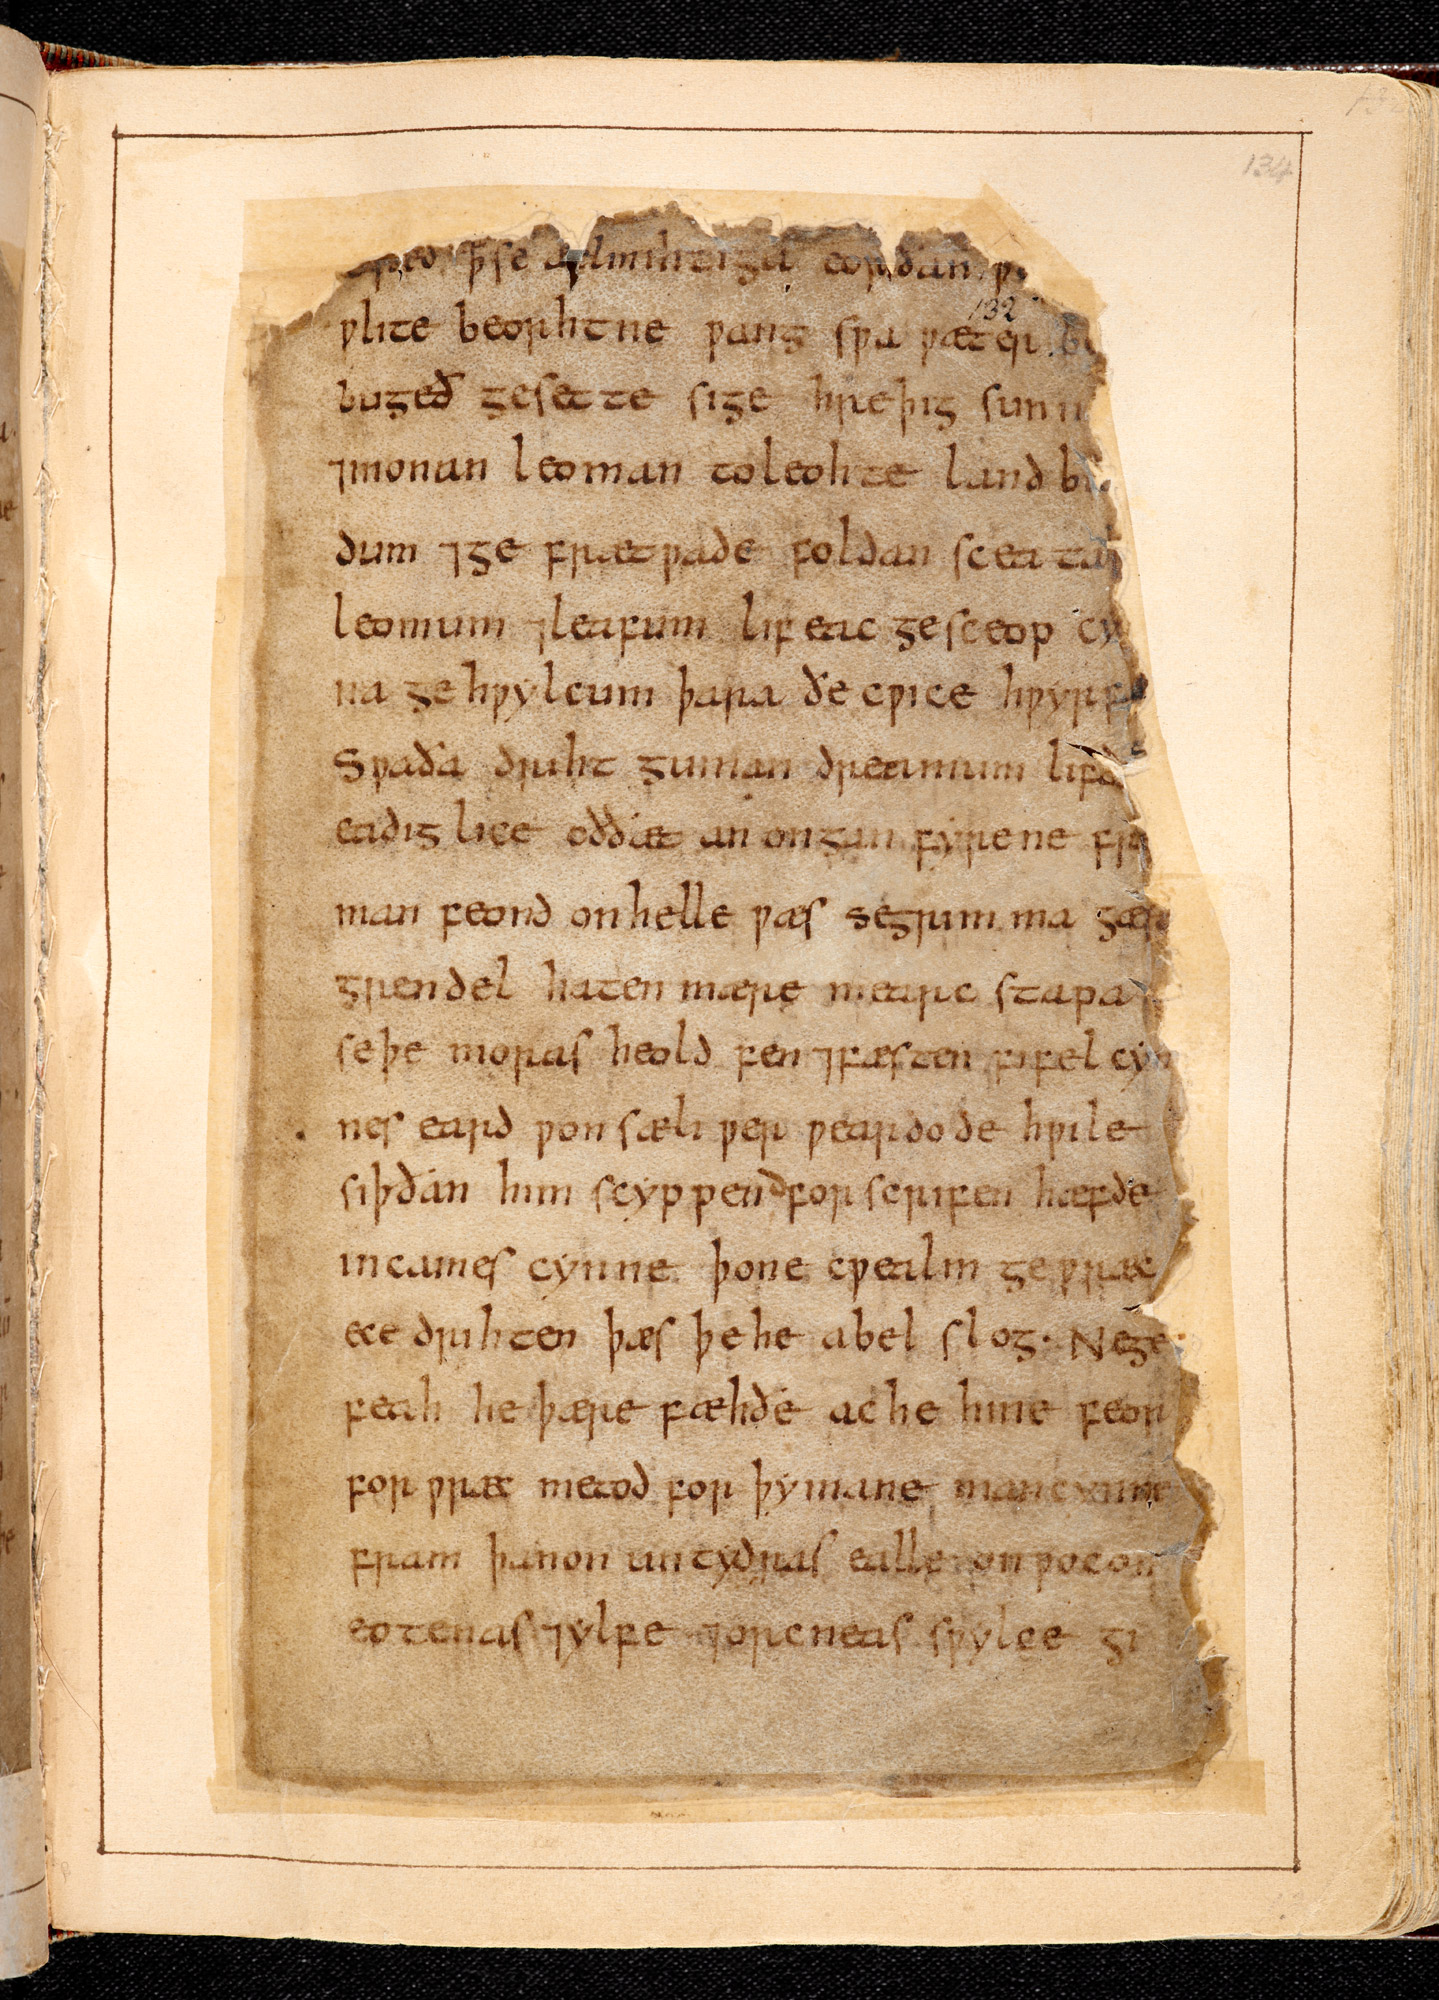 134
cƿeð ꝥ se ælmihtiga eorðan
132
ƿlite beorhtne ƿang sƿa ƿæter
bugeð gesette sige hreþig sun
⁊ monan leoman to leohte land
dum ⁊ ge frætƿade foldan sceatas
leomum ⁊ leafum lif eac gesceop cy
na ge hƿylcum þara ðe cƿice hƿyrf
Sƿa ða driht guman dreamum lifd
eadig lice oððæt an ongan fyrene fre
man feond on helle ƿæs se grim ma gæs
grendel haten mære mearc stapa
se þe moras heold fen ⁊ fæsten fifel cyn
nes eard ƿon sæli ƿer ƿeardode hƿile
siþðan him scyppend for scrifen hæfde
in caines cynne þone cƿealm ge ƿræc
ece drihten þæs þe he abel slog· Ne ge
feah he þære fæhðe ac he hine feor
for ƿræc metod for þy mane mancynne
fram þanon untydras ealle on ƿocon
eotenas ⁊ ylfe ⁊ orcneas sƿylce gi